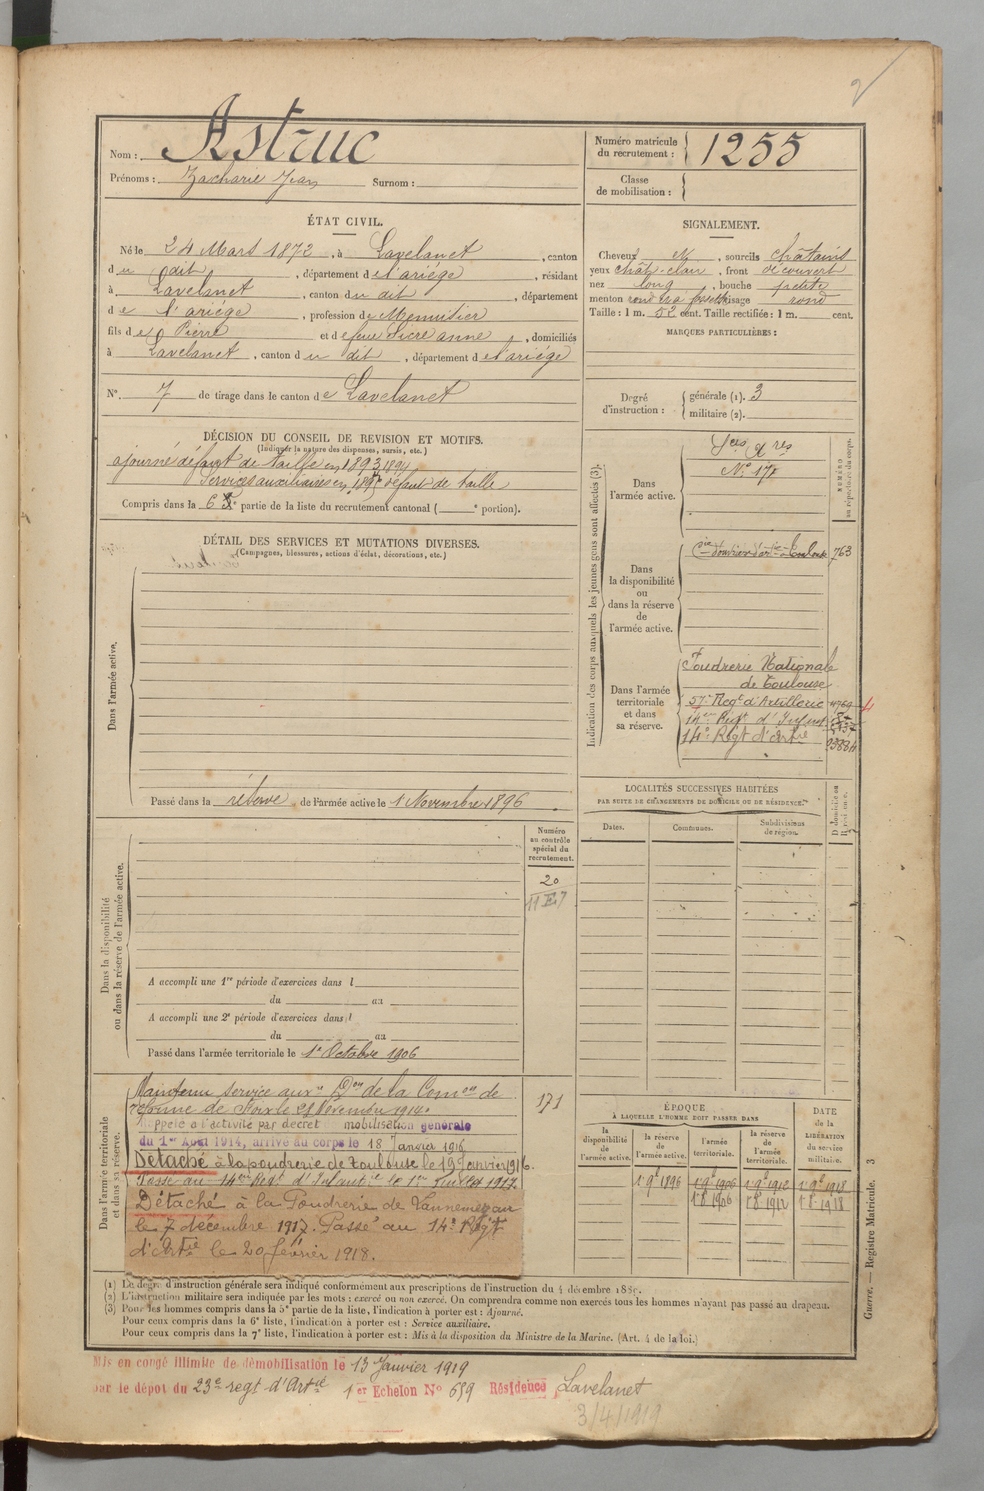 2
Nom : Astruc
Prénoms : Zacharie Jean Surnom :
Numéro matricule du recrutement : 1255
Classe de mobilisation :
ÉTAT CIVIL.
Né le 24 Mars 1872, à Lavelanet, canton
du dit, département de l'ariége, résidant
à Lavelanet, canton du dit, département
de l'ariége, profession de Menuisier
fils de Pierre et de feue Sicre anne, domiciliés
à Lavelanet, canton du dit, département de l'ariége
N° 7 de tirage dans le canton de Lavelanet
SIGNALEMENT.
Cheveux et, sourcils châtains
yeux chât. clair, front découvert
nez long, bouche petite
menton rond à fossette visage rond
Taille : 1 m. 52 cent. Taille rectifiée : 1 m. cent.
MARQUES PARTICULIÈRES :
Degré d'instruction : générale (1). 3
militaire (2).
DÉCISION DU CONSEIL DE REVISION ET MOTIFS.
(Indiquer la nature des dispenses, sursis, etc.)
ajourné défaut de taille en 1893, 1894
Services auxiliaires en 1895 défaut de taille
Compris dans la 6e partie de la liste du recrutement cantonal ( e portion).
DÉTAIL DES SERVICES ET MUTATIONS DIVERSES.
(Campagnes, blessures, actions d'éclat, décorations, etc.)
Dans l'armée active.
Passé dans la réserve de l'armée active le 1 Novembre 1896
Indication des corps auxquels les jeunes gens sont affectés (3).
NUMÉRO au répertoire du corps.
Dans l'armée active.
Sces Xres
N° 171
Dans la disponibilité ou dans la réserve de l'armée active.
Cie d'ouvriers d'artie Toulouse 763
Dans l'armée territoriale et dans sa réserve.
Poudrerie Nationale
de Toulouse
57e Regt d'Artillerie
14me Regt d'Infant
14e Regt d'artie
LOCALITÉS SUCCESSIVES HABITÉES
PAR SUITE DE CHANGEMENTS DE DOMICILE OU DE RÉSIDENCE.
Dates. Communes. Subdivisions de région. D. domicile ou R. résidence.
Dans la disponibilité ou dans la réserve de l'armée active.
Numéro au contrôle spécial du recrutement.
20
A accompli une 1re période d'exercices dans l
du au
A accompli une 2e période d'exercices dans l
du au
Passé dans l'armée territoriale le 1er Octobre 1906
Dans l'armée territoriale et dans sa réserve.
Maintenu service auxre Don de la Comon de
réforme de Foix le 21 Novembre 1914.
171
Rappelé à l'activité par décret mobilisation générale
du 1er Août 1914, arrivé au corps le 18 Janvier 1916
Détaché à la poudrerie de Toulouse le 19 Janvier 1916.
Passé au 14me Regt d'Infantie le 1er Juillet 1917.
Détaché à la Poudrerie de Lannemezan
le 7 décembre 1917. Passé au 14e Régt
d'Artie le 20 février 1918.
ÉPOQUE
À LAQUELLE L'HOMME DOIT PASSER DANS
la disponibilité de l'armée active. la réserve de l'armée active. l'armée territoriale. la réserve de l'armée territoriale.
DATE de la LIBÉRATION du service militaire.
1 9e 1896 1 9e 1906 1 9e 1912 1 9e 1918
1 8 1906 1 8 1912 1 8 1918
(1) Le degré d'instruction générale sera indiqué conformément aux prescriptions de l'instruction du 4 décembre 1889.
(2) L'instruction militaire sera indiquée par les mots : exercé ou non exercé. On comprendra comme non exercés tous les hommes n'ayant pas passé au drapeau.
(3) Pour les hommes compris dans la 5e partie de la liste, l'indication à porter est : Ajourné.
Pour ceux compris dans la 6e liste, l'indication à porter est : Service auxiliaire.
Pour ceux compris dans la 7e liste, l'indication à porter est : Mis à la disposition du Ministre de la Marine. (Art. 4 de la loi.)
Guerre. — Registre Matricule. 3
Mis en congé illimité de démobilisation le 13 Janvier 1919
par le dépot du 23e regt d'Artie 1er Echelon N° 659 Résidence Lavelanet
3/4/1919